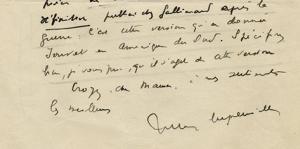 définitive publiée chez Gallimard après la
guerre. C'est cette version qu'a donnée
Jouvet en Amérique du Sud. Spécifiez
bien, je vous prie, qu'il s'agit de cette version
Croyez, cher Mauer, à mes sentiments
les meilleurs
Jules Supervielle